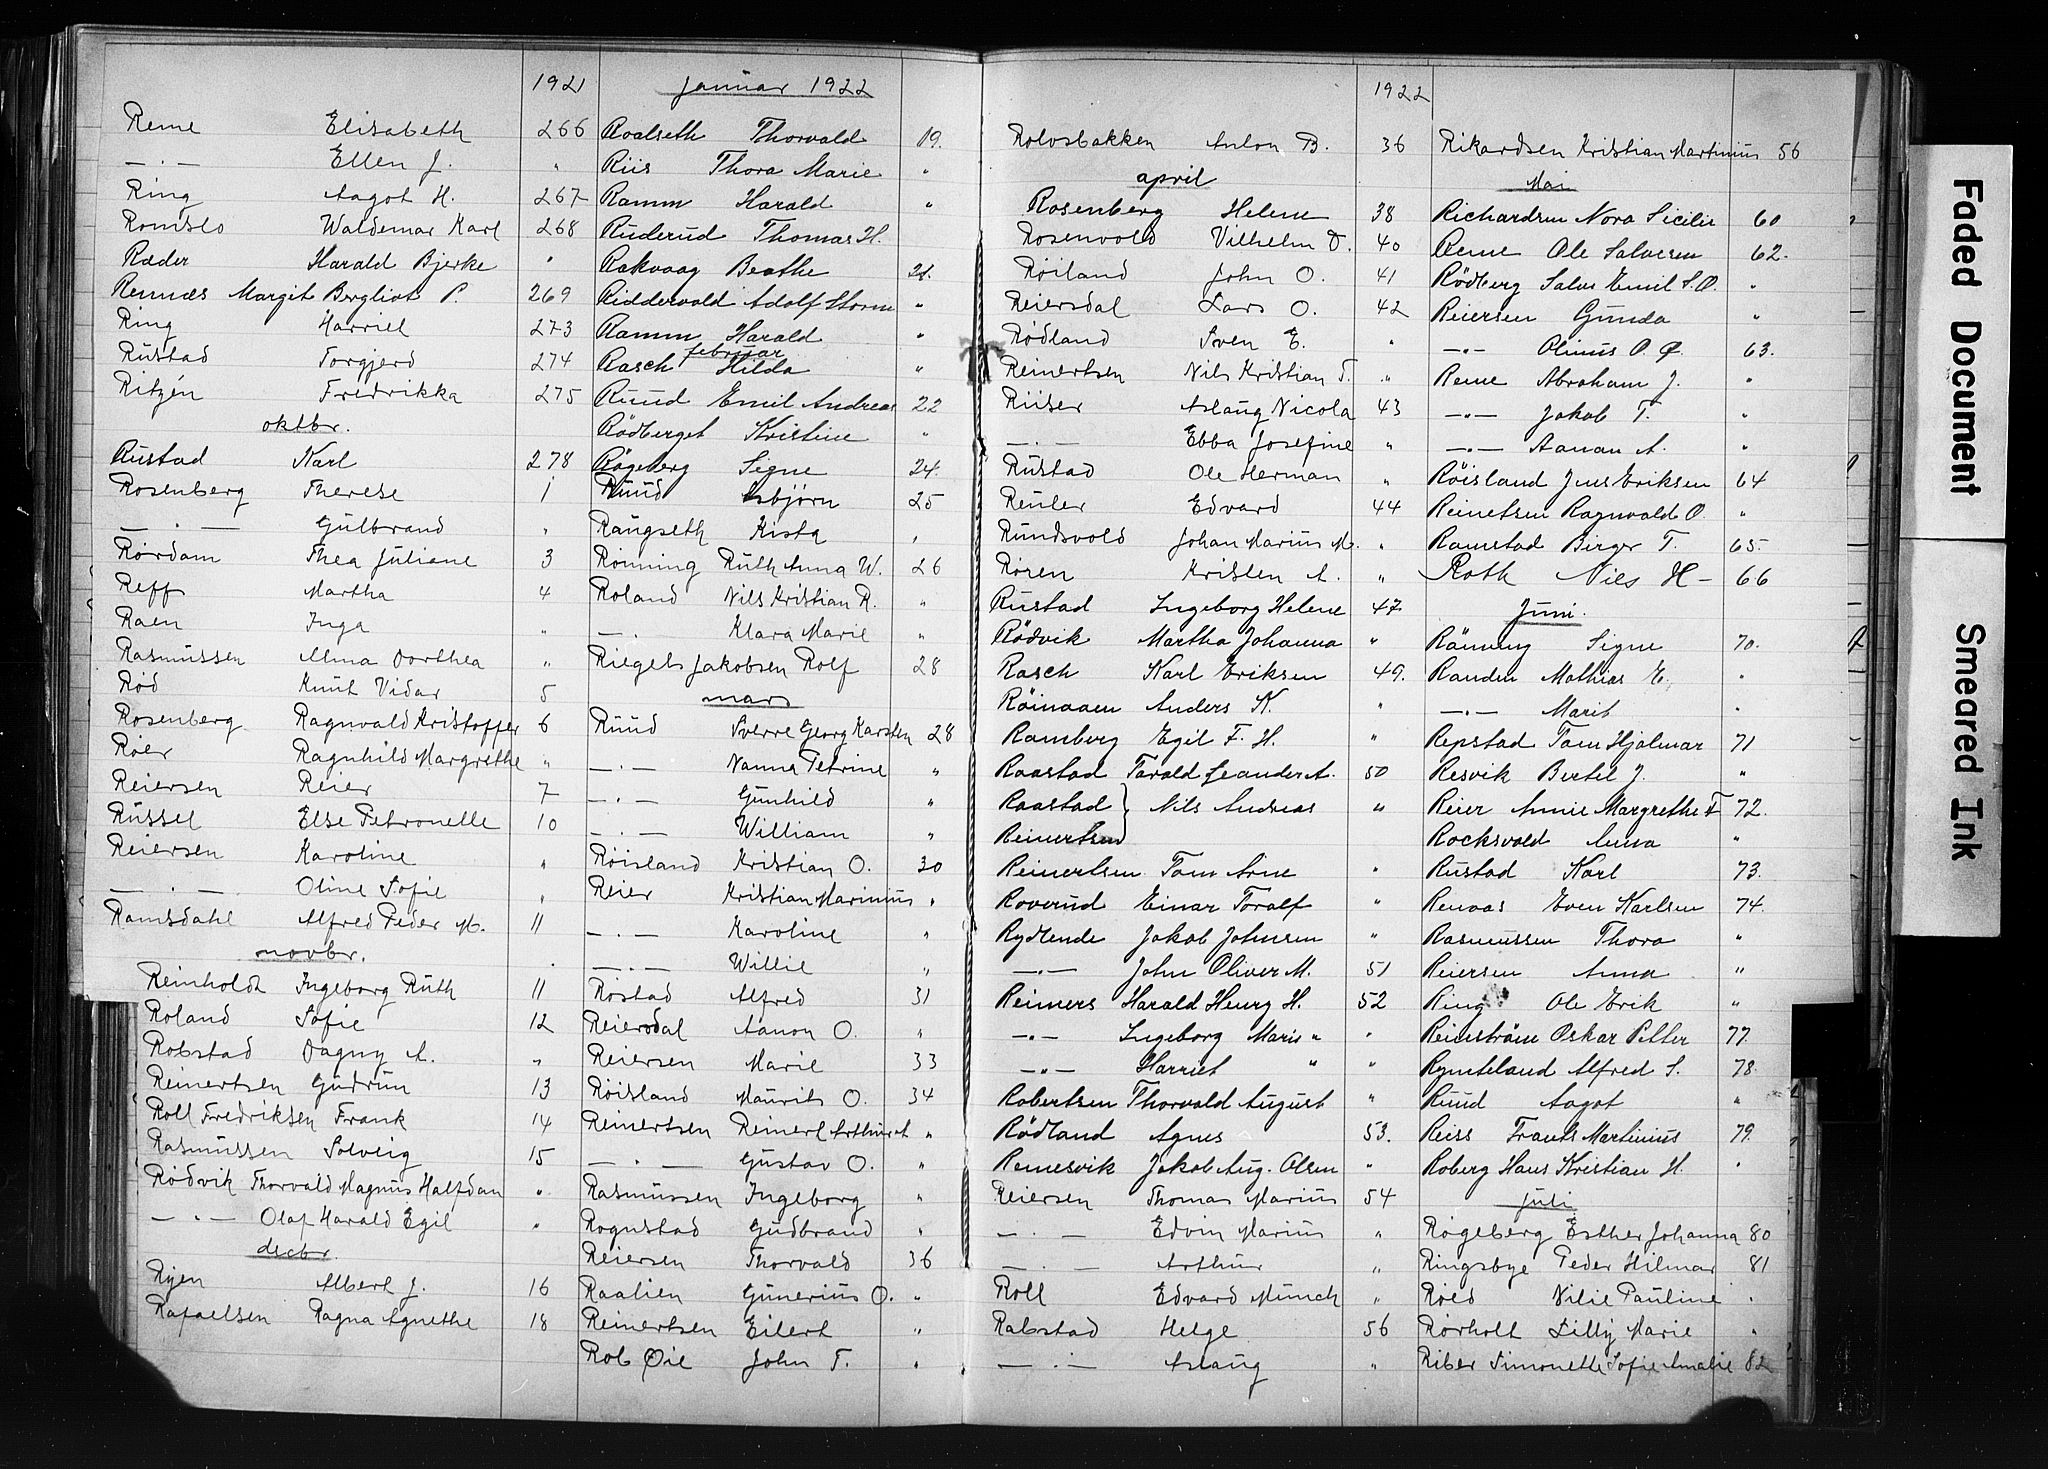 1921
Reme Elisabeth 266
—„— Ellen J. „
Ring Aagot H. 267
Romslo Waldemar Karl 268
Ræder Harald Bjerke „
Rennæs Margit Bergliot P. 269
Ring Harriet 273
Rustad Torgjerd 274
Ritzén Fredrikka 275
oktbr.
Rustad Karl 278
Rosenberg Therese 1
—„— Gulbrand „
Rørdam Thea Juliane 3
Reff Martha 4
Raen Inga „
Rasmussen Alma Dorthea „
Rød Knut Vidar 5
Rosenberg Ragnvald Kristoffer 6
Røer Ragnhild Margrethe „
Reiersen Reier 7
Russel Else Petronelle 10
Reiersen Karoline „
—„— Oline Sofie „
Ramsdahl Alfred Peder M. 11
novbr.
Reinholdt Ingeborg Ruth 11
Roland Sofie 12
Robstad Dagny A. „
Reinertsen Gudrun 13
Roll Fredriksen Frank 14
Rasmussen Solveig 15
Rødvik Thorvald Magnus Halfdan „
—„— Olaf Harald Egil „
decbr.
Rijen Albert J. 16
Rafaelsen Ragna Agnethe 18
januar 1922
Roalseth Thorvald 19.
Riis Thora Marie „
Ramm Harald „
Ruderud Thomas H.
Rakvaag Beathe 21.
Riddervold Adolf Storm „
Ramm Harald „
februar
Rasch Hilda „
Ruud Emil Andreas 22
Rödberget Kristine „
Rögeberg Signe 24.
Ruud Asbjörn 25
Raugseth Kista „
Rønning Ruth Anna W. 26
Roland Nils Kristian R. „
—„— Klara Marie „
Riegels Jakobsen Rolf 28
mars
Ruud Sverre Georg Karsten 28
—„— Nanna Petrine „
—„— Gunhild „
—„— William „
Røisland Kristian O. 30
Reier Kristian Marinius „
—„— Karoline „
—„— Willie „
Rostad Alfred 31
Reiersdal Aanon O. „
Reiersen Marie 33
Røisland Maurits O. 34
Reinertsen Reinert Arthur A „
—„— Gustav O. „
Rasmussen Ingeborg „
Rognstad Gudbrand „
Reiersen Thorvald 36
Raalien Gunerius O. „
Reinertsen Eilert „
Rob Øie John T. „
1922
Rolvsbakken Anton B. 36
april
Rosenberg Helene 38
Rosenvold Vilhelm D. 40
Røiland John O. 41
Reiersdal Lars O. 42
Rødland Sven E. „
Reinertsen Nils Kristian T. „
Riiser Aslaug Nicola 43
—„— Ebba Josefine „
Rustad Ole Herman „
Reuler Edvard 44
Rundsvold Johan Marius M. „
Røren Kristen A. „
Rustad Ingeborg Helene 47
Rödvik Martha Johanna „
Rasch Karl Eriksen 49.
Röinaaen Anders K. „
Ramberg Egil F. H. „
Raastad Tarald Leander A. 50
Raastad } Nils Andreas „
Reinertsen }
Reinertsen Tom Arne „
Roverud Einar Toralf „
Rydlende Jakob Johnsen „
—„— John Oliver M. 51
Reimers Harald Henry H. 52
—„— Ingeborg Marie „ „
—„— Harriet „ „
Robertsen Thorvald August „
Rödland Agnes 53.
Remesvik Jakob Aug. Olsen „
Reiersen Thomas Marius 54
—„— Edvin Marius „
—„— Arthur „
Roll Edvard Munch „
Rabstad Helge 56
—„— Aslaug „
Rikardsen Kristian Martinius 56
Mai
Richardsen Nora Sicilie 60
Reme Ole Salvesen 62.
Rödberg Salve Emil S.O. „
Reiersen Gunda „
—„— Olinus O. Ø. 63.
Reme Abraham J. „
—„— Jakob T. „
—„— Aanan A. „
Röisland Jens Eriksen 64
Reinetsen Ragnvald O. „
Ramstad Birger T. 65.
Roth Nils H— 66
Juni.
Rönning Signe 70.
Randen Mathias E. „
—„— Marit „
Repstad Tom Hjalmar 71
Resvik Bertel J. „
Reier Annie Margrethe F 72.
Rocksvold Anna „
Rustad Karl 73.
Renaas Even Karlsen 74.
Rasmussen Thora „
Reiersen Anna „
Ring Ole Erik „
Reinström Oskar Petter 77.
Rynteland Alfred S. 78.
Ruud Aagot „
Reiss Frants Martinius 79.
Roberg Hans Kristian H. „
juli
Røgeberg Esther Johanna 80
Ringsbye Peder Hilmar 81
Røed Nilie Pauline „
Rørholt Lilly Marie „
Riber Simonette Sofie Amalie 82
Faded Document
Smeared Ink